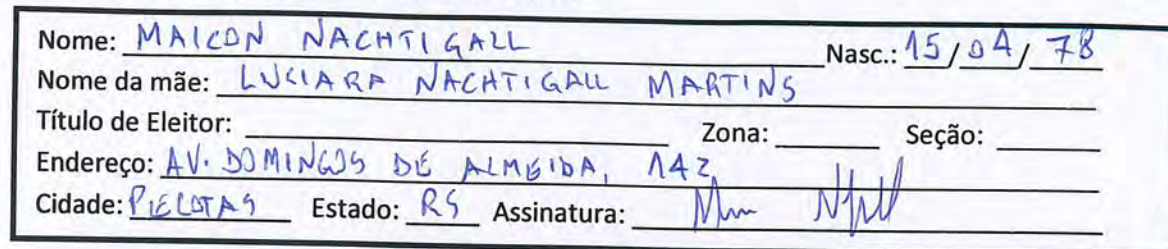 Nome: MAICON NACHTIGALL Nasc.: 15/04/78
Nome da mãe: LUCIARA NACHTIGALL MARTINS
Título de Eleitor: Zona: Seção:
Endereço: AV. DOMINGOS DE ALMEIDA, 142
Cidade: PELOTAS Estado: RS Assinatura: